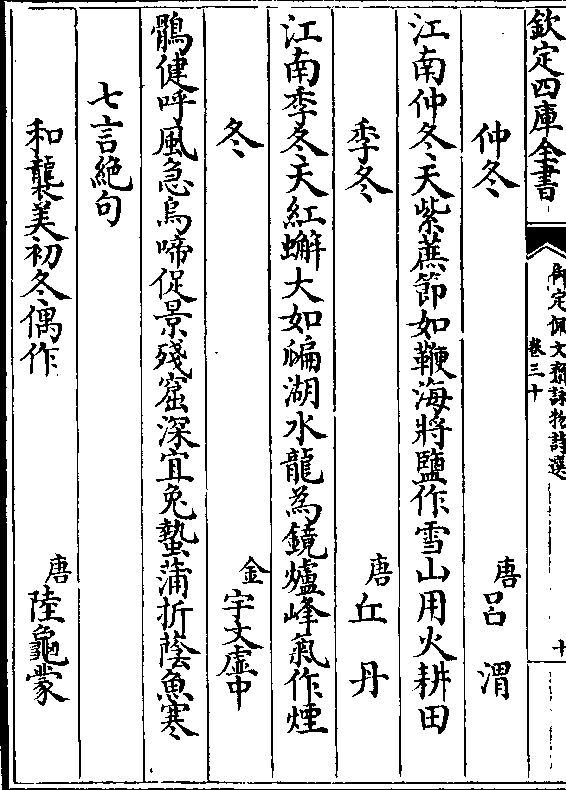 欽定四庫全書
御定佩文齋詠物詩選
卷三十
十
仲冬
唐呂渭
江南仲冬天紫蔗節如鞭海將鹽作雪山用火耕田
季冬
唐丘丹
江南季冬天紅蠏大如㼐湖水龍為鏡爐峰氣作煙
冬
金宇文虛中
鶻健呼風急烏啼促景殘窟深宜兔蟄蒲折蔭魚寒
七言絶句
和襲美初冬偶作
唐陸龜蒙